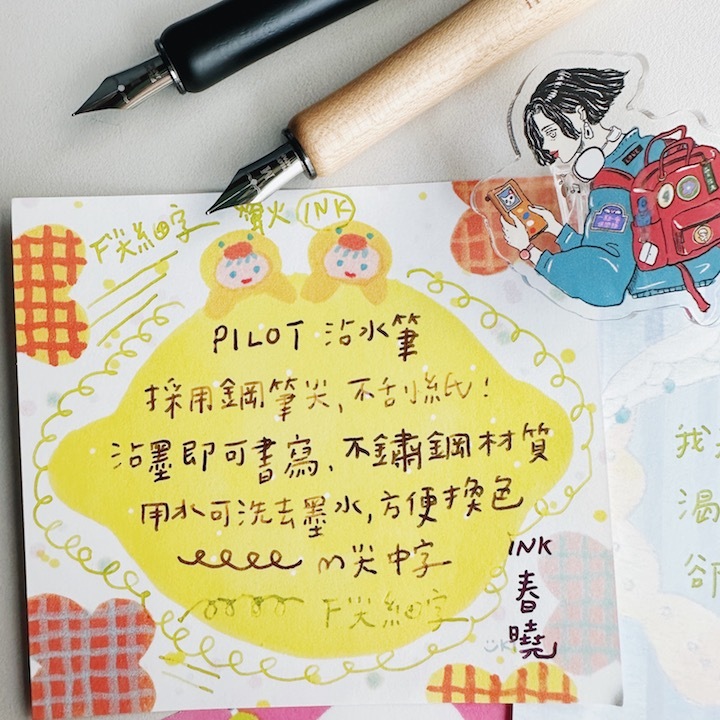 F尖細字 螢火 INK
PILOT 沾水筆
採用鋼筆尖,不刮紙!
沾墨即可書寫,不鏽鋼材質
用水可洗去墨水,方便換色
m尖中字
F尖細字
INK
春曉
我
渴
卻